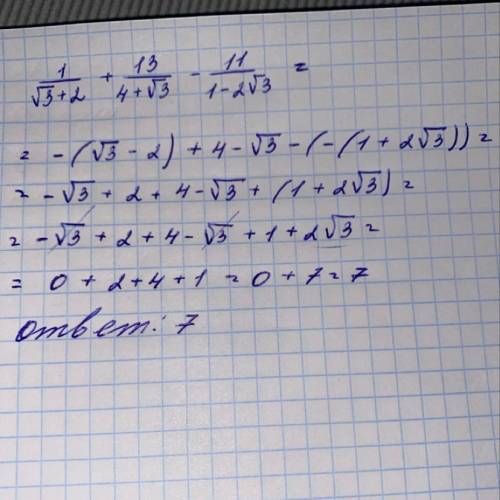 1/(√3+2) + 13/(4+√3) - 11/(1-2√3) =
= -(√3-2) + 4-√3 -(-(1+2√3)) =
= -√3 + 2 + 4-√3 + (1+2√3) =
= -√3 + 2 + 4 - √3 + 1 + 2√3 =
= 0 + 2+4+1 = 0+7=7
ответ: 7